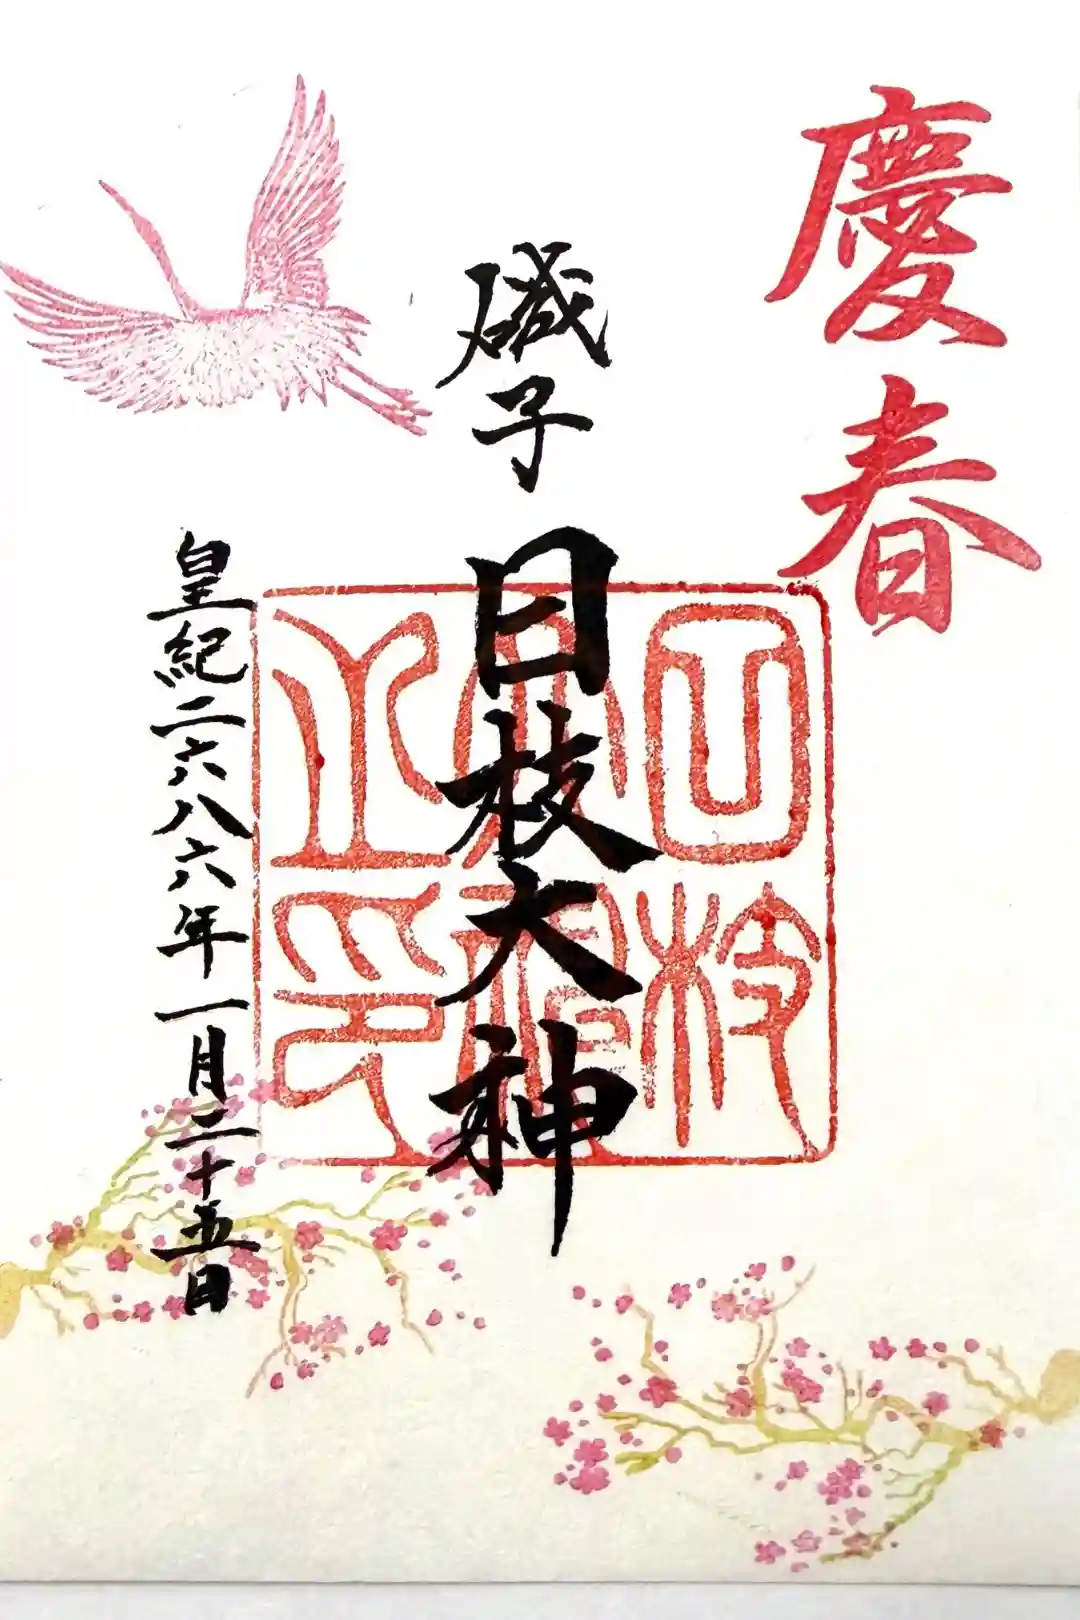 慶春
磯子
日枝大神
日枝
大神
之印
皇紀二六八六年一月二十五日